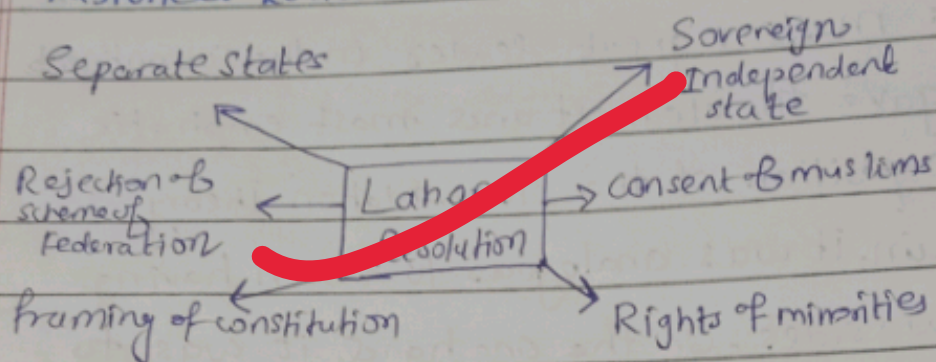 Separate states
Sovereign
Independent
state
Rejection of
scheme of
Federation
Lahore
Resolution
Consent of muslims
framing of constitution
Rights of minorities